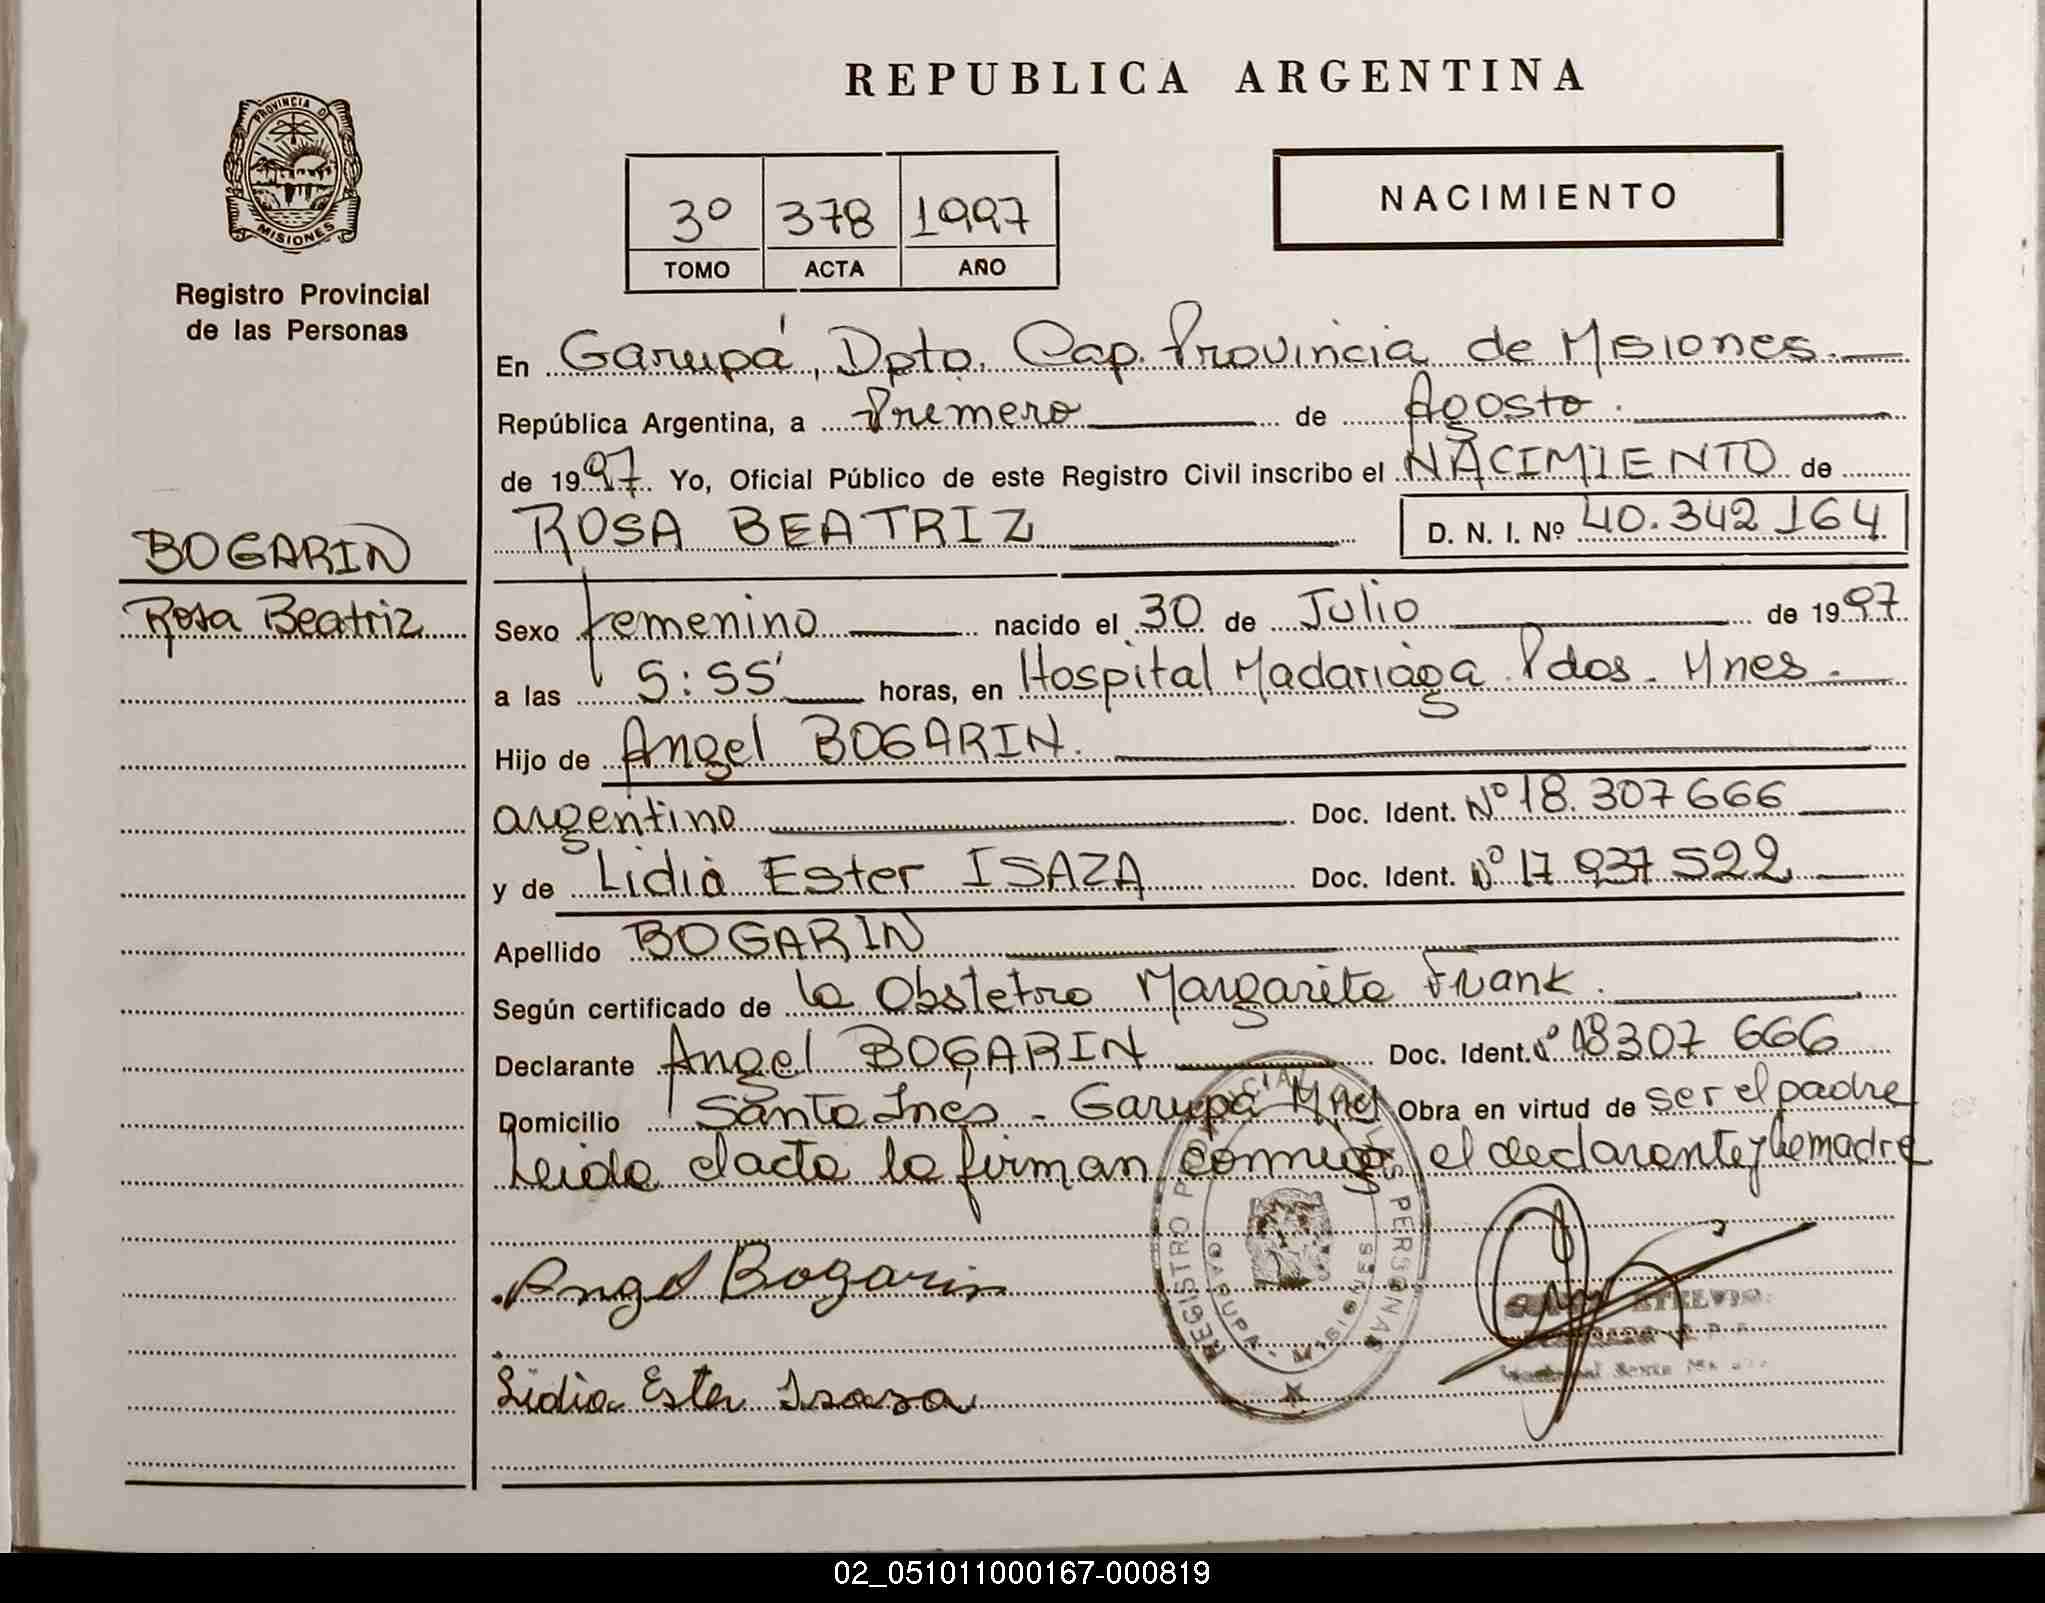 REPUBLICA ARGENTINA
PROVINCIA D
MISIONES
Registro Provincial
de las Personas
3º 378 1997
TOMO ACTA AÑO
NACIMIENTO
En Garupá, Dpto. Cap. Provincia de Misiones.
República Argentina, a Primero de Agosto.
de 1997. Yo, Oficial Público de este Registro Civil inscribo el NACIMIENTO de
BOGARIN
ROSA BEATRIZ D. N. I. Nº 40.342164
Rosa Beatriz
Sexo femenino nacido el 30 de Julio de 1997
a las 5:55' horas, en Hospital Madariaga Pdas. Mnes.
Hijo de Angel BOGARIN.
argentino Doc. Ident. Nº 18.307666
y de Lidia Ester ISAZA Doc. Ident. Nº 17 937 522
Apellido BOGARIN
Según certificado de la Obstetra Margarita Frank.
Declarante Angel BOGARIN Doc. Ident. Nº 18307 666
Domicilio Santa Inés - Garupá Mnes Obra en virtud de ser el padre
Leida el acta la firman conmigo el declarante y la madre
REGISTRO PERSONAS
GARUPA - MISIONES
Angel Bogarin
Lidia Ester Isaza
02_051011000167-000819